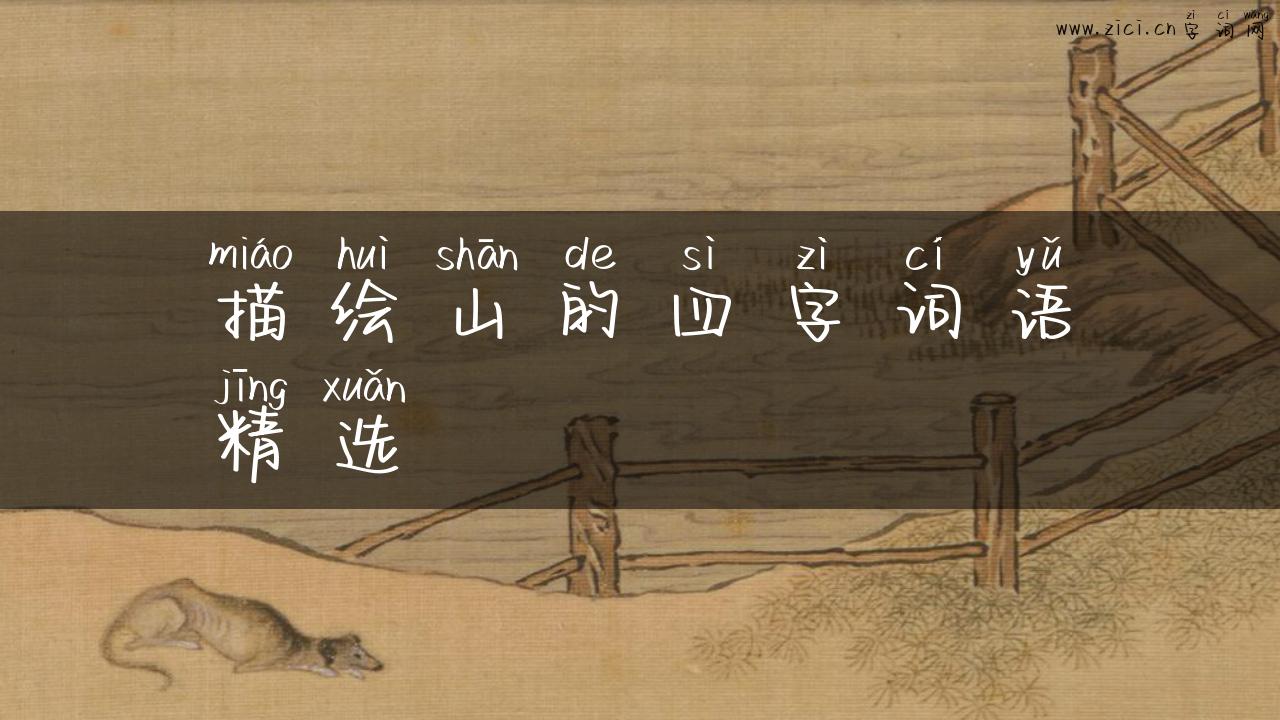 zì cí wǎng
www.zici.cn 字词网
miáo huì shān de sì zì cí yǔ
描绘山的四字词语
jīng xuǎn
精选